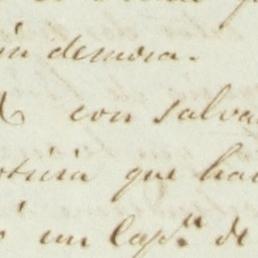 in demora.
con salva
oticia que ha
un Cap.n de